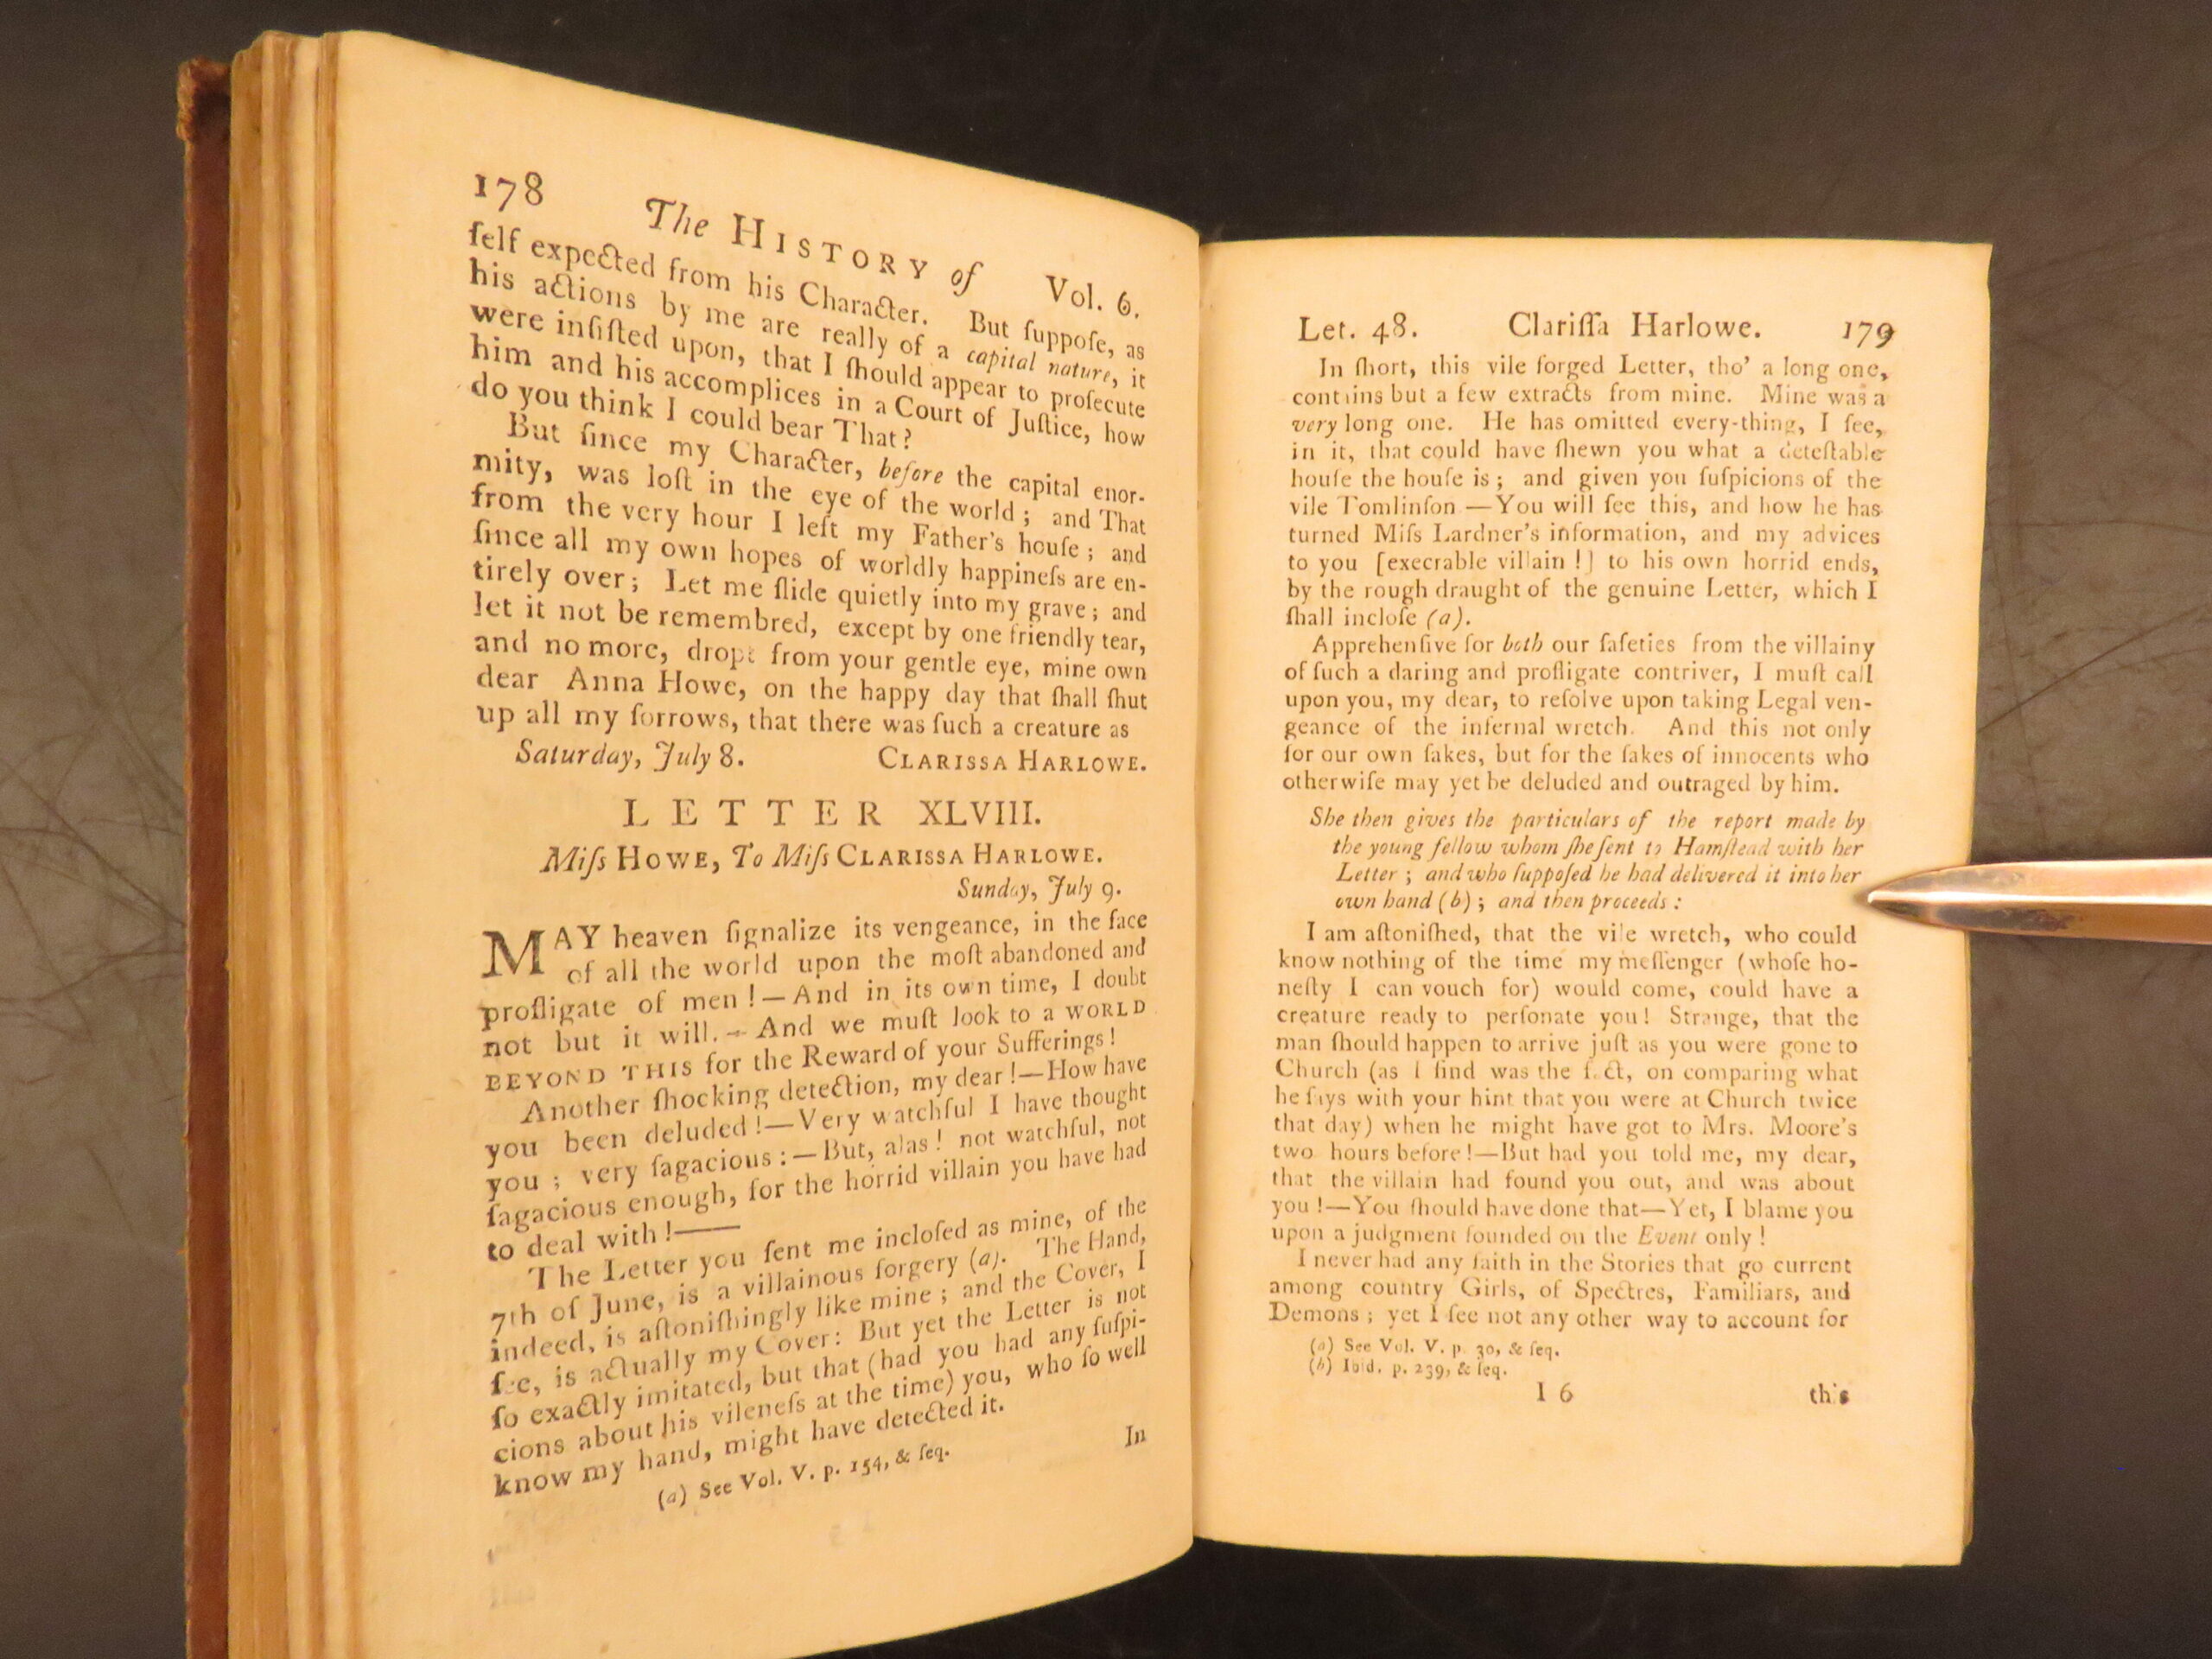 178 The HISTORY of Vol. 6.
ſelf expected from his Character. But ſuppoſe, as
his actions by me are really of a capital nature, it
were inſiſted upon, that I ſhould appear to proſecute
him and his accomplices in a Court of Juſtice, how
do you think I could bear That?
But ſince my Character, before the capital enor-
mity, was loſt in the eye of the world; and That
from the very hour I left my Father's houſe; and
ſince all my own hopes of worldly happineſs are en-
tirely over; Let me ſlide quietly into my grave; and
let it not be remembred, except by one friendly tear,
and no more, dropt from your gentle eye, mine own
dear Anna Howe, on the happy day that ſhall ſhut
up all my ſorrows, that there was ſuch a creature as
Saturday, July 8. CLARISSA HARLOWE.
LETTER XLVIII.
Miſs HOWE, To Miſs CLARISSA HARLOWE.
Sunday, July 9.
MAY heaven ſignalize its vengeance, in the face
of all the world upon the moſt abandoned and
profligate of men!—And in its own time, I doubt
not but it will.—And we muſt look to a WORLD
BEYOND THIS for the Reward of your Sufferings!
Another ſhocking detection, my dear!—How have
you been deluded!—Very watchful I have thought
you; very ſagacious:—But, alas! not watchful, not
ſagacious enough, for the horrid villain you have had
to deal with!——
The Letter you ſent me incloſed as mine, of the
7th of June, is a villainous forgery (a). The Hand,
indeed, is aſtoniſhingly like mine; and the Cover, I
ſee, is actually my Cover: But yet the Letter is not
ſo exactly imitated, but that (had you had any ſuſpi-
cions about his vileneſs at the time) you, who ſo well
know my hand, might have detected it.
In
(a) See Vol. V. p. 154, & ſeq.
Let. 48. Clariſſa Harlowe. 179
In ſhort, this vile forged Letter, tho' a long one,
contains but a few extracts from mine. Mine was a
very long one. He has omitted every-thing, I ſee,
in it, that could have ſhewn you what a deteſtable
houſe the houſe is; and given you ſuſpicions of the
vile Tomlinſon—You will ſee this, and how he has
turned Miſs Lardner's information, and my advices
to you [execrable villain!] to his own horrid ends,
by the rough draught of the genuine Letter, which I
ſhall incloſe (a).
Apprehenſive for both our ſafeties from the villainy
of ſuch a daring and profligate contriver, I muſt call
upon you, my dear, to reſolve upon taking Legal ven-
geance of the infernal wretch. And this not only
for our own ſakes, but for the ſakes of innocents who
otherwiſe may yet be deluded and outraged by him.
She then gives the particulars of the report made by
the young fellow whom ſhe ſent to Hamſtead with her
Letter; and who ſuppoſed he had delivered it into her
own hand (b); and then proceeds:
I am aſtoniſhed, that the vile wretch, who could
know nothing of the time my meſſenger (whoſe ho-
neſty I can vouch for) would come, could have a
creature ready to perſonate you! Strange, that the
man ſhould happen to arrive juſt as you were gone to
Church (as I find was the fact, on comparing what
he ſays with your hint that you were at Church twice
that day) when he might have got to Mrs. Moore's
two hours before!—But had you told me, my dear,
that the villain had found you out, and was about
you!—You ſhould have done that—Yet, I blame you
upon a judgment founded on the Event only!
I never had any faith in the Stories that go current
among country Girls, of Spectres, Familiars, and
Demons; yet I ſee not any other way to account for
(a) See Vol. V. p. 30, & ſeq.
(b) Ibid. p. 239, & ſeq.
I 6 this